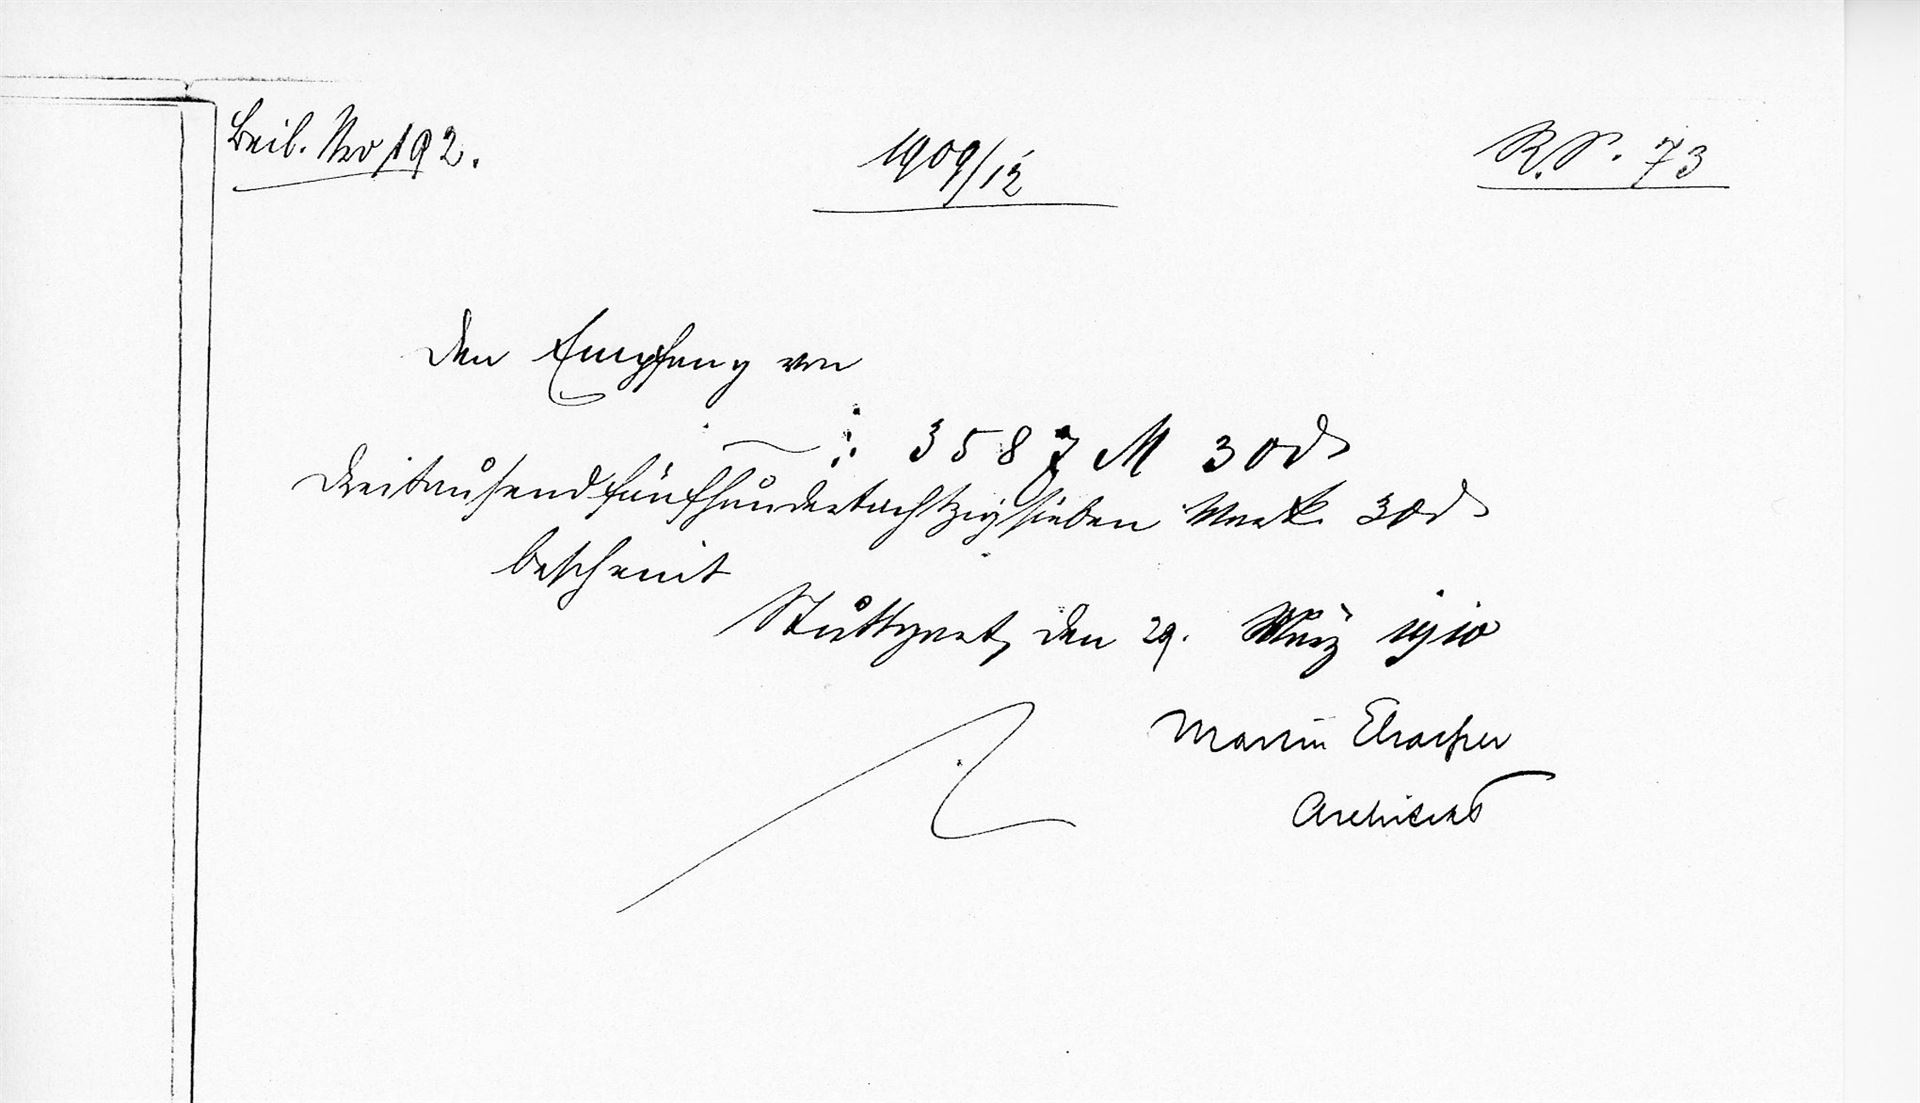 Beil. Nro 192.
1909/12
R.P. 73
den Empfang von
—: 3587 M 30 ₰
Dreitausendfünfhundertachtzigsieben Mark 30 ₰
bescheint
Stuttgart, den 29. März 1910
Martin Elsaesser
Architekt